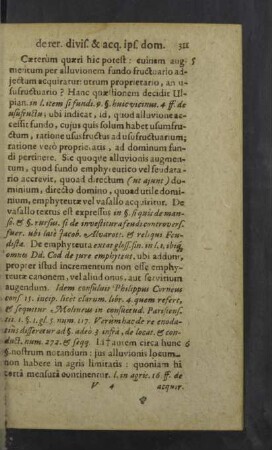 de rer. divis. & acq. ips. dom. 311
Cæterùm quæri hic potest: cuinam aug- 5
mentum per alluvionem fundo fructuario ad-
jectum acquiratur: utrum proprietario, an u-
sufructuario? Hanc quæstionem decidit Ul-
pian. in l. item si fundi. 9. §. huic vicinus. 4. ff. de
usufructu, ubi indicat, id, quod alluvione ac-
cessit fundo, cujus quis solum habet usumfru-
ctum, ratione ususfructus ad usufructuarium;
ratione verò proprietatis, ad dominum fun-
di pertinere. Sic quoque alluvionis augmen-
tum, quod fundo emphyteutico vel feudata-
rio accrevit, quoad directum (ut ajunt) do-
minium, directo domino, quoad utile domi-
nium, emphyteutæ vel vasallo acquiritur. De
vasallo textus est expressus in §. si quis de man-
so. & §. rursus. si de investitura feudi controvers.
fuer. ubi latè Jacob. Alvarott. & reliqui Feu-
distæ. De emphyteuta extat gloss. sin. in l. 1. ibiq,
omnes Dd. Cod. de jure emphyteut. ubi addunt,
propter istud incrementum non esse emphy-
teutæ canonem, vel aliud onus, aut servitium
augendum. Idem consuluit Philippus Corneus
cons. 15. incip. licet clarum. libr. 4. quem refert,
& sequitur Molinæus in consuetud. Parisiens.
tit. 1. §. 1. gl. 5. num. 117. Verùm hac de re enoda-
tius disseretur ad §. adeò. 3. infra, de locat. & con-
duct. num. 272. & seqq. Lıṁ autem circa hunc 6
§. nostrum notandum: jus alluvionis locum
non habere in agris limitatis: quoniam hi
certâ mensurâ continentur. l. in agris. 16. ff. de
V 4 acquir.